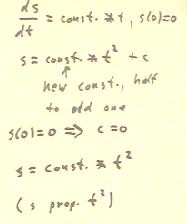 ds/dt = const. * t, s(0)=0
s = const. * t² + c
↑
new const., half
to old one
s(0)=0 ⇒ c=0
s = const. * t²
(s prop. t²)